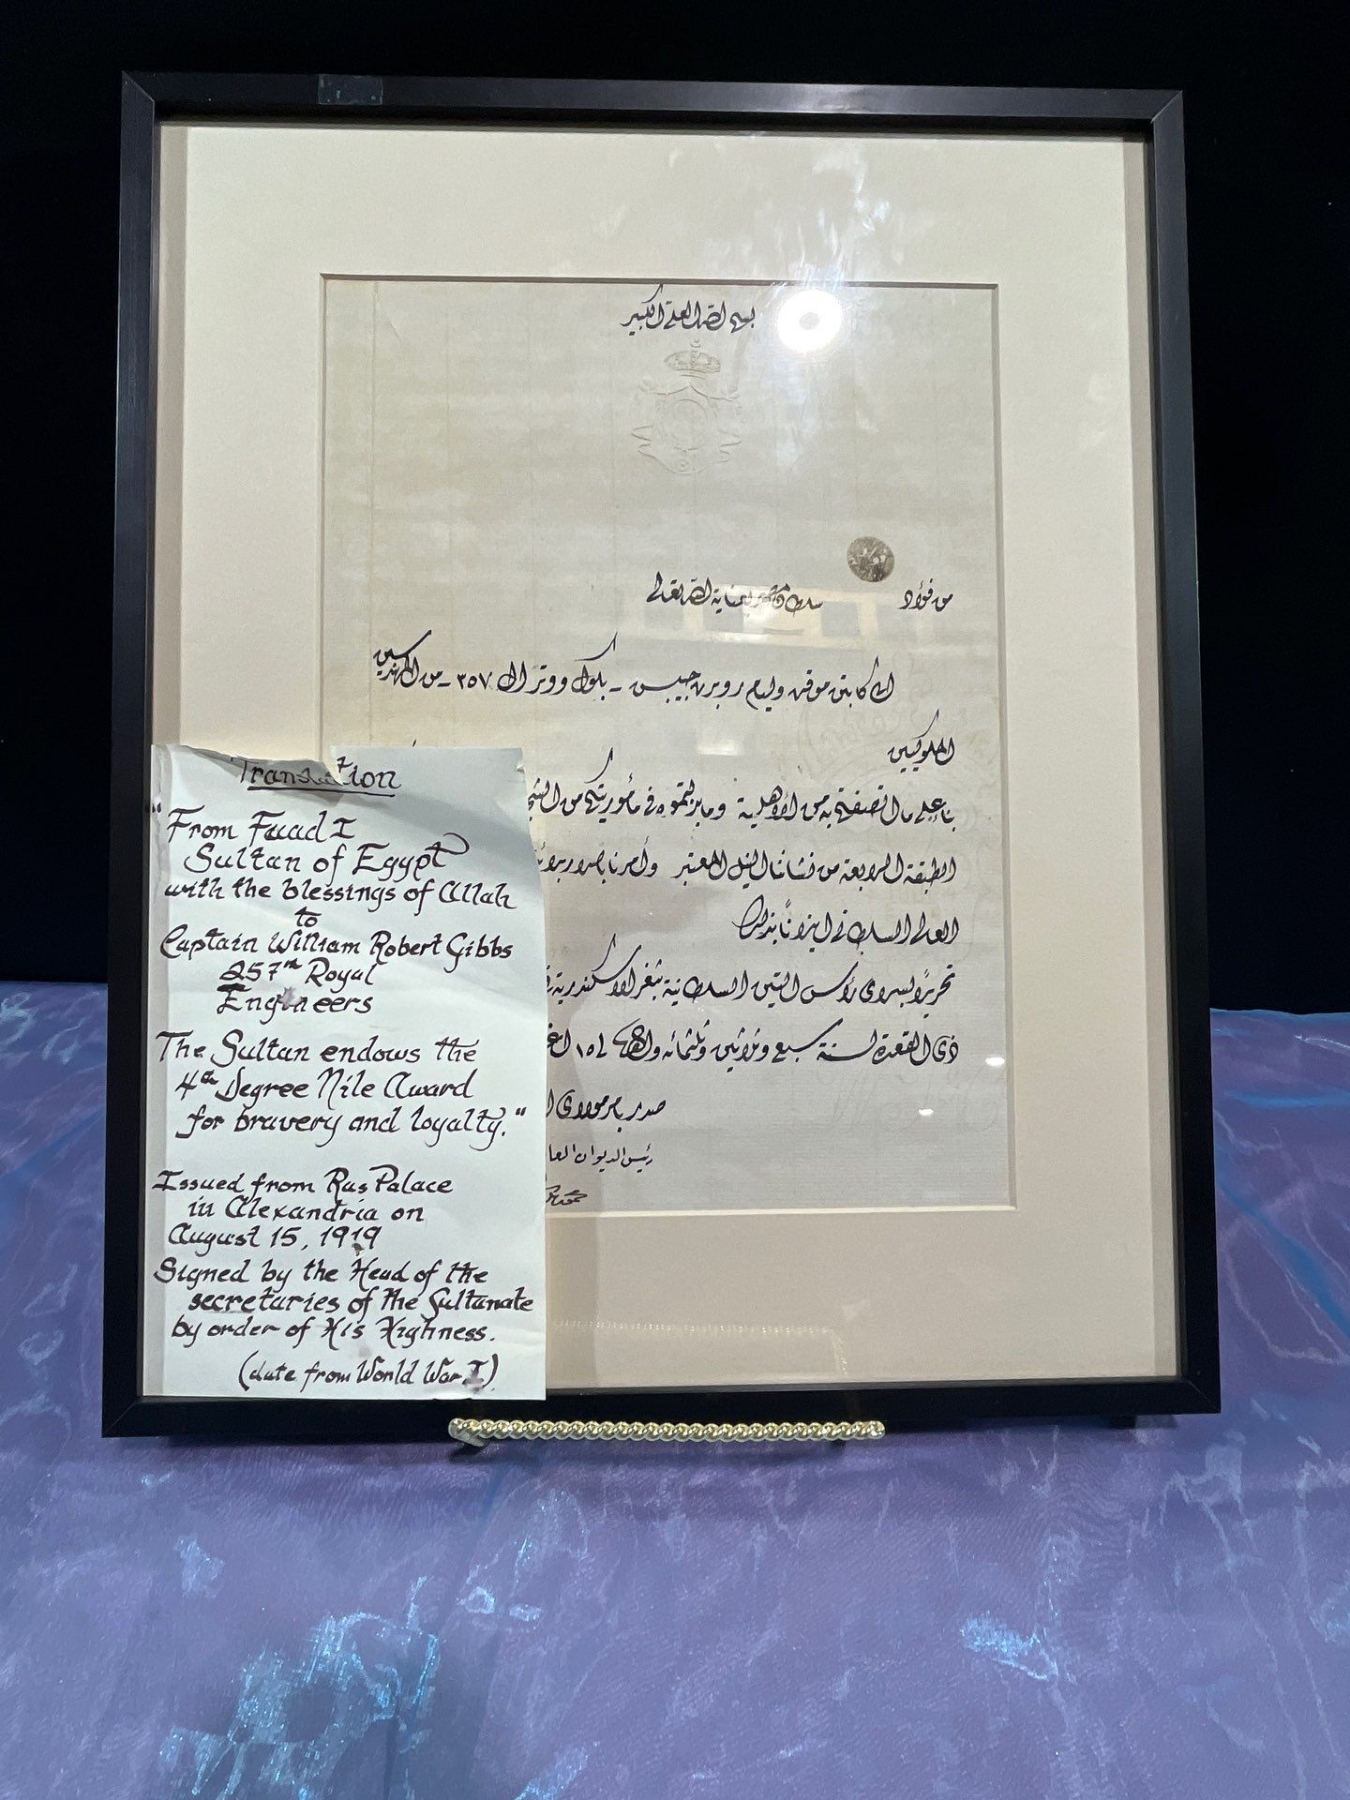 بسم الله العلي الكبير
من فؤاد سلطان مصر بعناية الله تعالى
الى كابتن موقت وليام روبرت جيبس - بلوك ووتر ال ٣٥٧ - من المهندسين
الملوكيين
بناء على ما اتصفتم به من الأهلية وما بذلتموه في مأموريتكم من
الطبقة الرابعة من نشاننا النيل المعتبر وأمرنا باصدار
العالي السلطاني ايذانا بذلك
تحريرًا بسراي رأس التين السلطانية بثغر الاسكندرية
ذي القعدة لسنة سبع وثلاثين وثلثمائه والف ١٥
صدر بامر مولاي
رئيس الديوان
Translation
"From Fuad I
Sultan of Egypt
with the blessings of Allah
to
Captain William Robert Gibbs
257th Royal
Engineers
The Sultan endows the
4th Degree Nile Award
for bravery and loyalty."
Issued from Ras Palace
in Alexandria on
August 15, 1919
Signed by the Head of the
secretaries of the Sultanate
by order of His Highness.
(date from World War I)